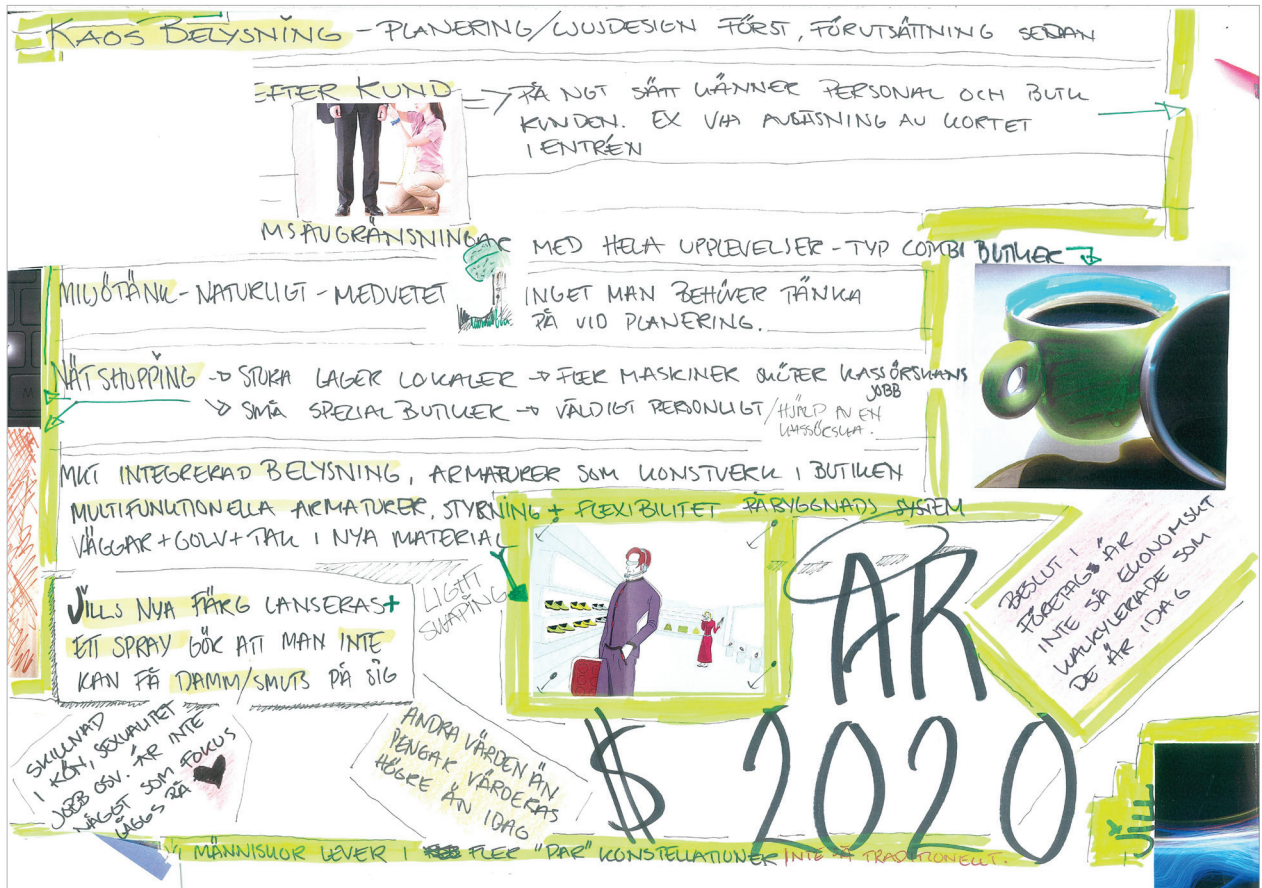 KAOS BELYSNING - PLANERING/LJUSDESIGN FÖRST, FÖRUTSÄTTNING SEDAN
EFTER KUND => PÅ NGT SÄTT KÄNNER PERSONAL OCH BUTIK
KUNDEN. EX VIA AVLÄSNING AV KORTET
I ENTRÉN
MSAVGRÄNSNINGAR MED HELA UPPLEVELSER - TYP COMBI BUTIKER
MILJÖTÄNK - NATURLIGT - MEDVETET INGET MAN BEHÖVER TÄNKA
PÅ VID PLANERING.
NÄTSHOPPING -> STORA LAGER LOKALER -> FLER MASKINER SKÖTER KASSÖRSKANS
JOBB
-> SMÅ SPECIAL BUTIKER -> VÄLDIGT PERSONLIGT/HJÄLP AV EN
KASSÖRSKA.
MKT INTEGRERAD BELYSNING, ARMATURER SOM KONSTVERK I BUTIKEN
MULTIFUNKTIONELLA ARMATURER, STYRNING + FLEXIBILITET PÅBYGGNADS SYSTEM
VÄGGAR+GOLV+TAK I NYA MATERIAL
JILLS NYA FÄRG LANSERAS+
ETT SPRAY GÖR ATT MAN INTE
KAN FÅ DAMM/SMUTS PÅ SIG
LIGHT
SHAPING
ÅR
$ 2020
BESLUT I
FÖRETAG ÄR
INTE SÅ EKONOMSKT
KALKYLERADE SOM
DE ÄR IDAG
SKILLNAD
I KÖN, SEXUALITET
JOBB OSV. ÄR INTE
NÅGOT SOM FOKUS
LÄGGS PÅ
ANDRA VÄRDEN ÄN
PENGAR VÄRDERAS
HÖGRE ÄN IDAG
MÄNNISKOR LEVER I FLER "PAR" KONSTELLATIONER INTE SÅ TRADITIONELLT.
JILL